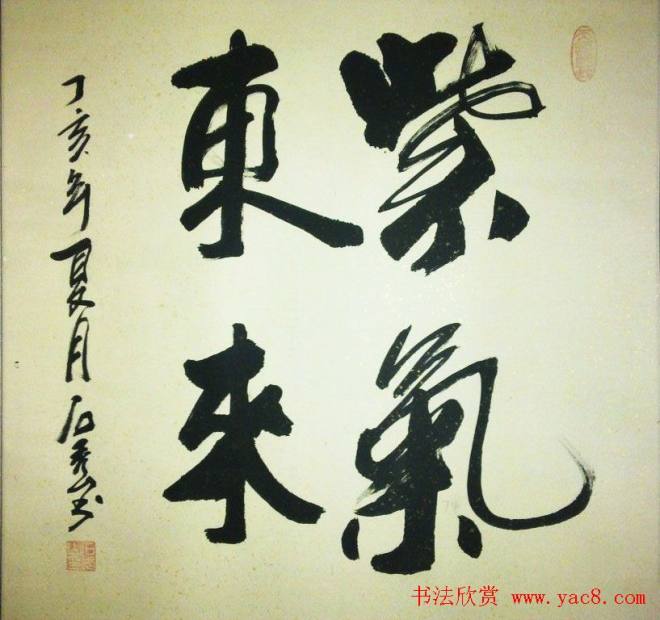 紫氣
東来
丁亥年夏月石秀山书
书法欣赏 www.yac8.com